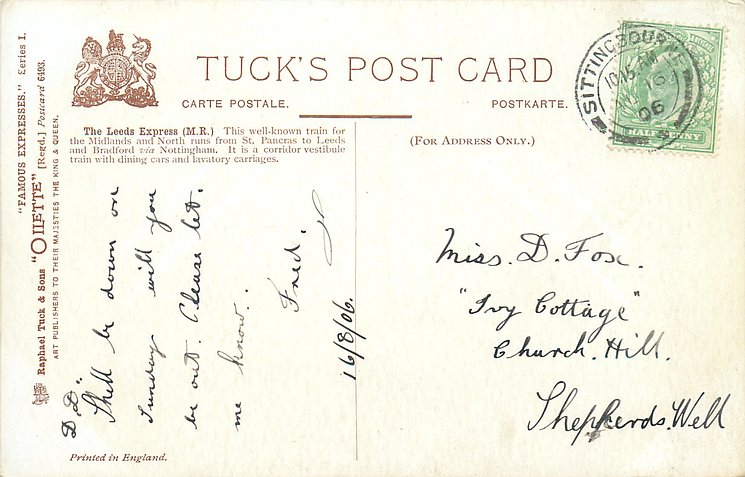 "FAMOUS EXPRESSES." Series I.
Raphael Tuck & Sons "OILETTE" [Regd.] Postcard 6493.
ART PUBLISHERS TO THEIR MAJESTIES THE KING & QUEEN.
TUCK'S POST CARD
CARTE POSTALE.
POSTKARTE.
The Leeds Express (M.R.) This well-known train for
the Midlands and North runs from St. Pancras to Leeds
and Bradford via Nottingham. It is a corridor vestibule
train with dining cars and lavatory carriages.
(FOR ADDRESS ONLY.)
SITTINGBOURNE
10.15 AM
16
06
HALFPENNY
D.D.
Shall be down on
Sunday will you
be out. Please let.
me know.
Fred.
16/8/06.
Miss. D. Fox.
"Ivy Cottage"
Church. Hill.
Shepherds. Well
Printed in England.